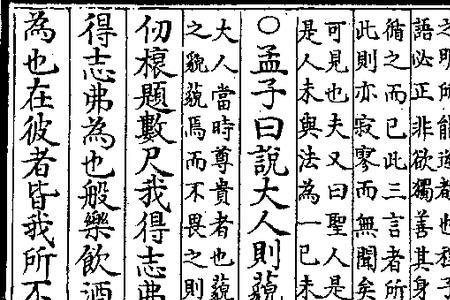 語必正非欲獨善其身
循之而已此三言者所
此則亦寂寥而無聞矣
可見也夫又曰聖人是
是人未與法為一已未
○孟子曰說大人則藐
大人當時尊貴者也藐
之藐藐焉而不畏之則
仞榱題數尺我得志弗
得志弗為也般樂飲酒
為也在彼者皆我所不